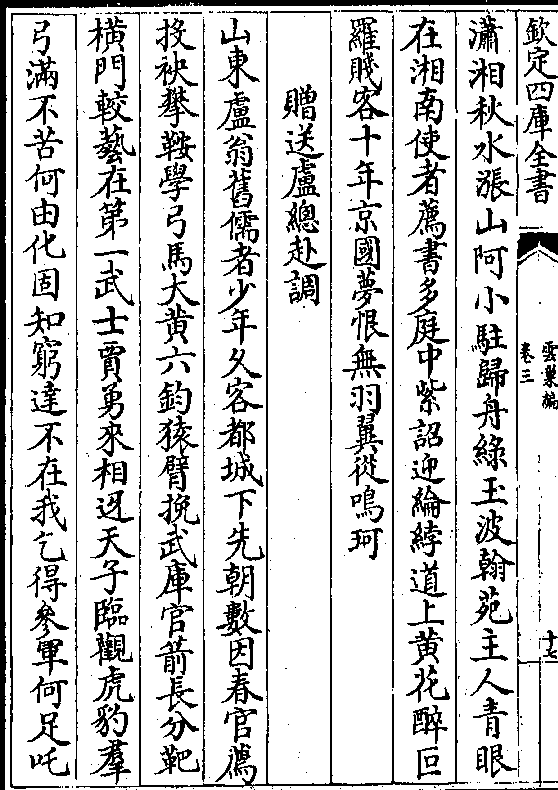 欽定四庫全書
雲巢編
卷三
十七
瀟湘秋水漲山阿小駐歸舟綠玉波翰苑主人青眼
在湘南使者薦書多庭中紫詔迎綸綍道上黄花醉叵
羅賤客十年京國夢恨無羽翼從鳴珂
贈送盧總赴調
山東盧翁舊儒者少年久客都城下先朝數因春官薦
投袂攀鞍學弓馬大黄六鈞猿臂挽武庫官箭長分靶
横門較藝在第一武士賈勇來相迓天子臨觀虎豹羣
弓滿不苦何由化固知窮達不在我乞得參軍何足吒